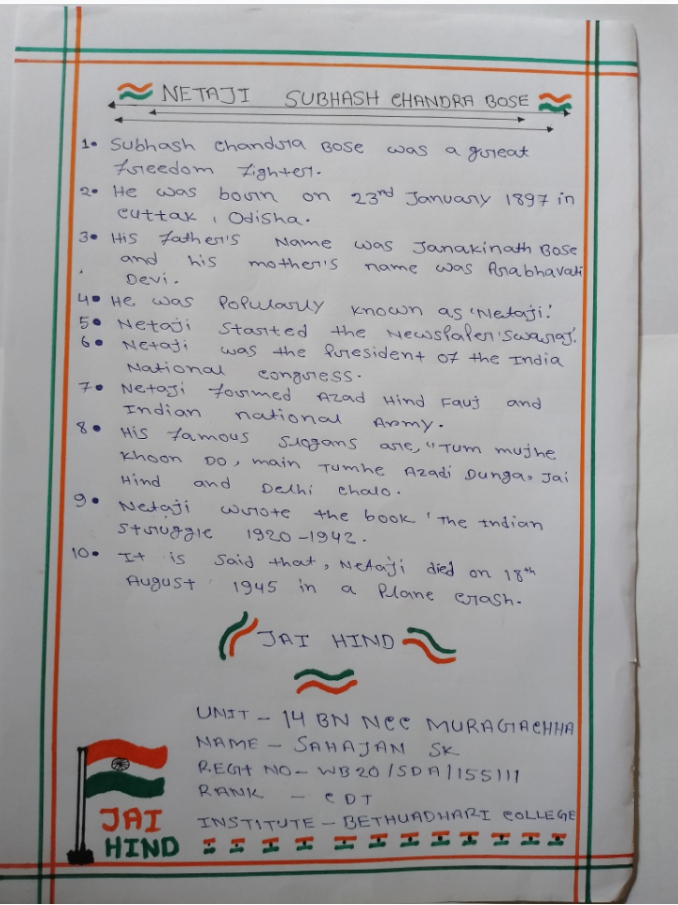 NETAJI SUBHASH CHANDRA BOSE
1. Subhash Chandra Bose was a great
freedom fighter.
2. He was born on 23rd January 1897 in
cuttak, Odisha.
3. His father's Name was Janakinath Bose
and his mother's name was Prabhavati
Devi.
4. He was Popularly known as 'Netaji'.
5. Netaji started the Newspaper 'Swaraj'.
6. Netaji was the President of the India
National congress.
7. Netaji formed Azad Hind Fauj and
Indian national Army.
8. His famous slogans are, "Tum mujhe
Khoon Do, main Tumhe Azadi Dunga, Jai
Hind and Delhi chalo.
9. Netaji wrote the book 'The Indian
Struggle 1920-1942.
10. It is said that, Netaji died on 18th
August 1945 in a Plane crash.
JAI HIND
UNIT - 14 BN NCC MURAGACHHA
NAME - SAHAJAN SK
REGT NO - WB20/SDA/155111
RANK - CDT
INSTITUTE - BETHUADHARI COLLEGE
JAI
HIND